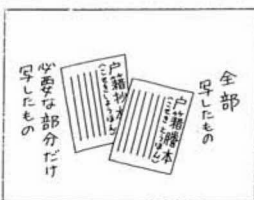 全部
写したもの
戸籍謄本
(こせきとうほん)
戸籍抄本
(こせきしょうほん)
必要な部分だけ
写したもの